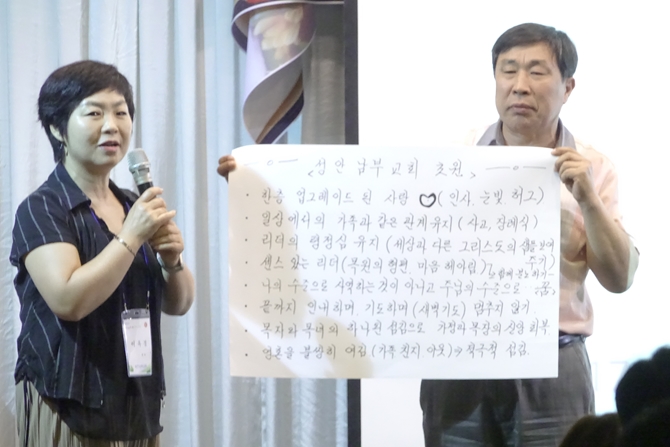 <성안 남부교회 초원>
· 한층 업그레이드 된 사랑 ♡ (인사, 눈빛, 허그)
· 일상에서의 가족과 같은 관계유지 (사고, 장례식)
· 리더의 평정심 유지 (세상과 다른 그리스도의 삶을 보여주기)
· 센스 있는 리더 (목원의 형편, 마음 헤아림),
· 나의 수준으로 사역하는 것이 아니고 주님의 수준으로 ---
· 끝까지 인내하며, 기도하며 (새벽기도) 멈추지 않기.
· 목자와 목녀의 하나된 섬김으로 가정과 목장의 신앙 회복
· 영혼을 불쌍히 여김 (가족 친지, 이웃) ⇒ 적극적 섬김.